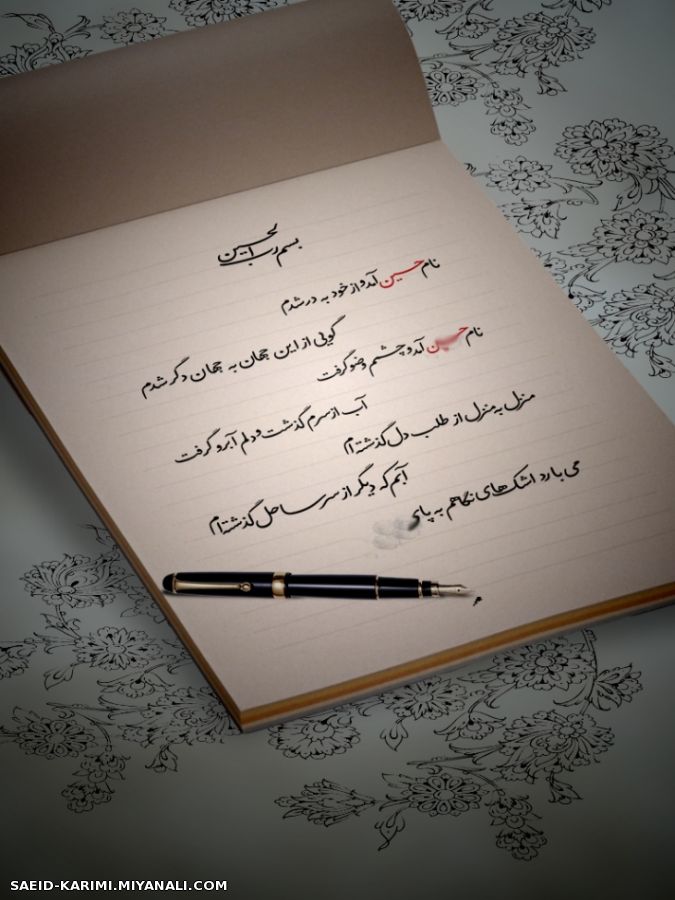 بسم رب الحسین
نام حسین آمد و از خود به در شدم
گویی از این جهان به جهان دگر شدم
نام حسین آمد و چشمم وضو گرفت
آب از سرم گذشت و دلم آبرو گرفت
منزل به منزل از طلب دل گذشته‌ام
آبم که دیگر از سر ساحل گذشته‌ام
می بارد اشک‌های نگاهم به پای
SAEID-KARIMI.MIYANALI.COM